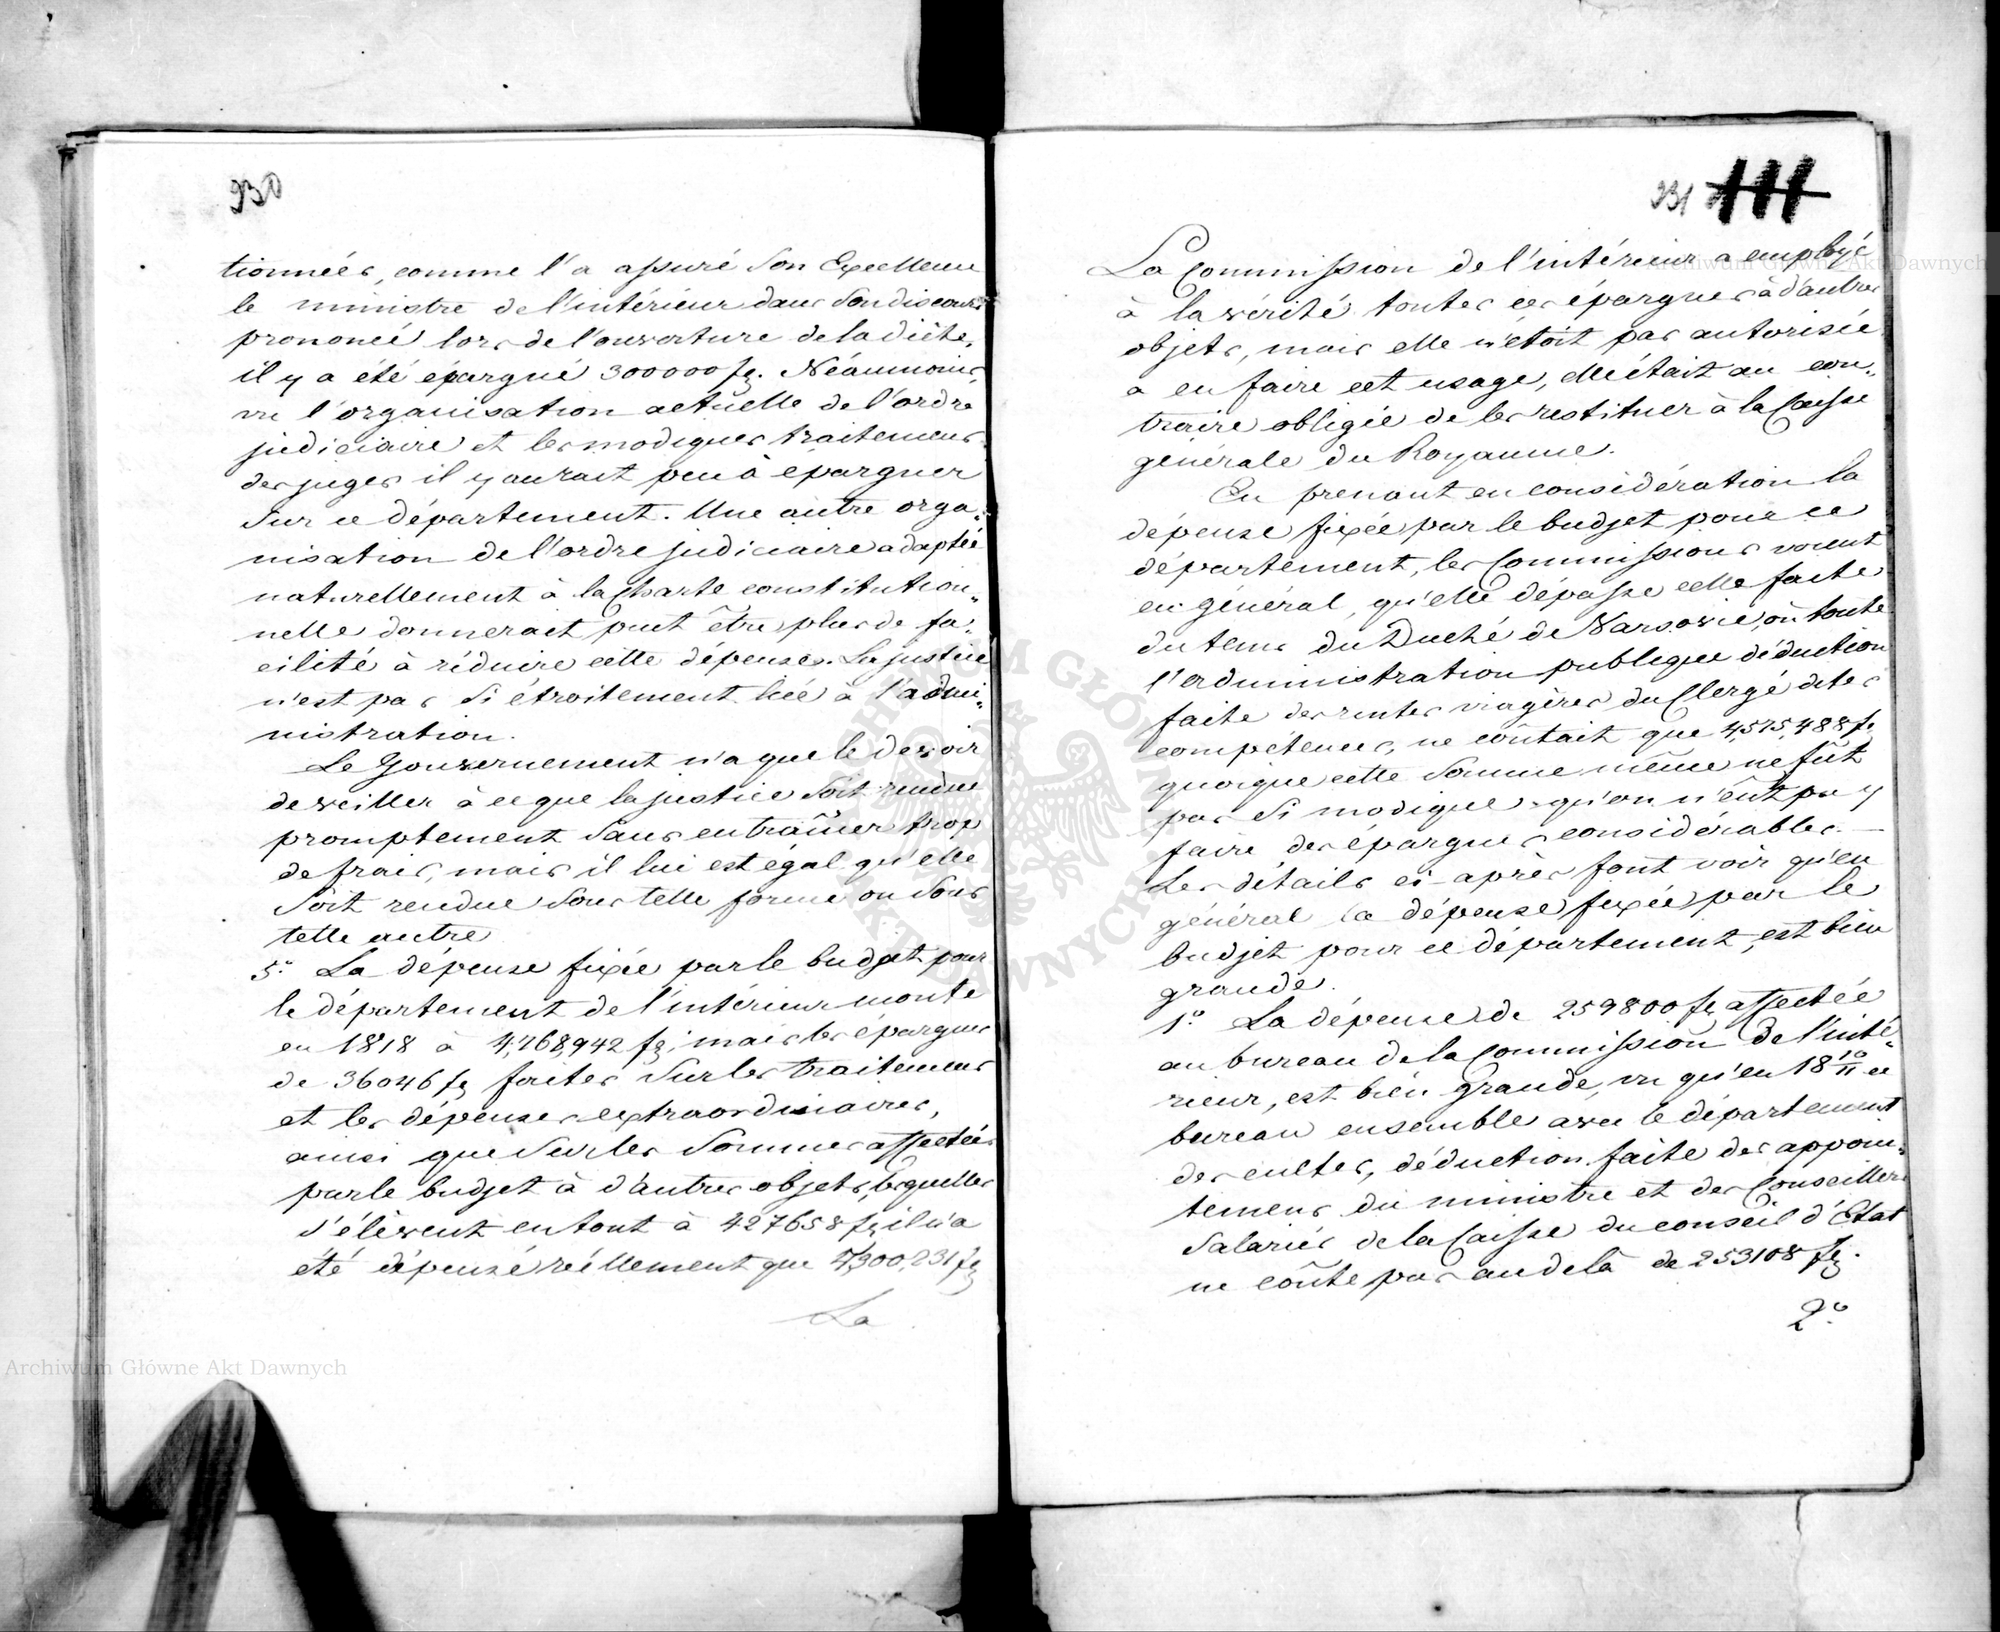 930
tionnées, comme l'a assuré Son Excellence
le ministre de l'intérieur dans Son discours
prononcé lors de l'ouverture de la diète,
il y a été épargné 300000 fl. Néanmoins,
vu l'organisation actuelle de l'ordre
judiciaire et les modiques traitemens
des juges il y aurait peu à épargner
Sur ce département. Une autre orga„
nisation de l'ordre judiciaire adaptée
naturellement à la Charte constitution„
nelle donnerait peut être plus de fa„
cilité à réduire cette dépense. La justice
n'est pas Si étroitement liée à l'admi„
nistration.
Le Gouvernement n'a que le devoir
de veiller à ce que la justice Soit rendue
promptement Sans entraîner trop
de frais, mais il lui est égal qu'elle
Soit rendue Sous telle forme ou Sous
telle autre
5° La dépense fixée par le budget pour
le département de l'intérieur monte
en 1818 à 4,768,942 fl; mais les épargnes
de 36046 fl faites Sur les traitemens
et les dépenses extraordinaires,
ainsi que Sur les Sommes affectées
par le budget à d'autres objets, lesquelles
S'élèvent en tout à 427658 fl il n'a
été dépensé réellement que 4,300,231 fl
La
931
111
La Commission de l'intérieur a employé
à la vérité toutes ces épargnes à d'autres
objets, mais elle n'étoit pas autorisée
a en faire cet usage, elle était au con„
traire obligée de les restituer à la Caisse
générale du Royaume.
En prenant en considération la
dépense fixée par le budjet pour ce
département, les Commissions voient
en général, qu'elle dépasse celle faite
du tems du Duché de Varsovie, où toute
l'administration publique déduction
faite des rentes viagères du Clergé dites
compétences, ne coûtait que 4,575,488 fl.
quoique cette Somme même ne fût
pas Si modique qu'on n'eût pu y
faire des épargnes considérables. —
Les détails ci-après font voir qu'en
général la dépense fixée par le
budjet pour ce département, est bien
grande.
1° La dépense de 259800 fl affectée
au bureau de la Commission de l'inté„
rieur, est bien grande, vu qu'en 18 10/11 ce
bureau ensemble avec le département
des cultes, déduction faite des appoin„
temens du ministre et des Conseillers
Salariés de la Caisse du conseil d'Etat
ne coûte pas au delà de 253108 fl.
2°
Archiwum Główne Akt Dawnych
Archiwum Główne Akt Dawnych
ARCHIWUM GŁÓWNE AKT DAWNYCH